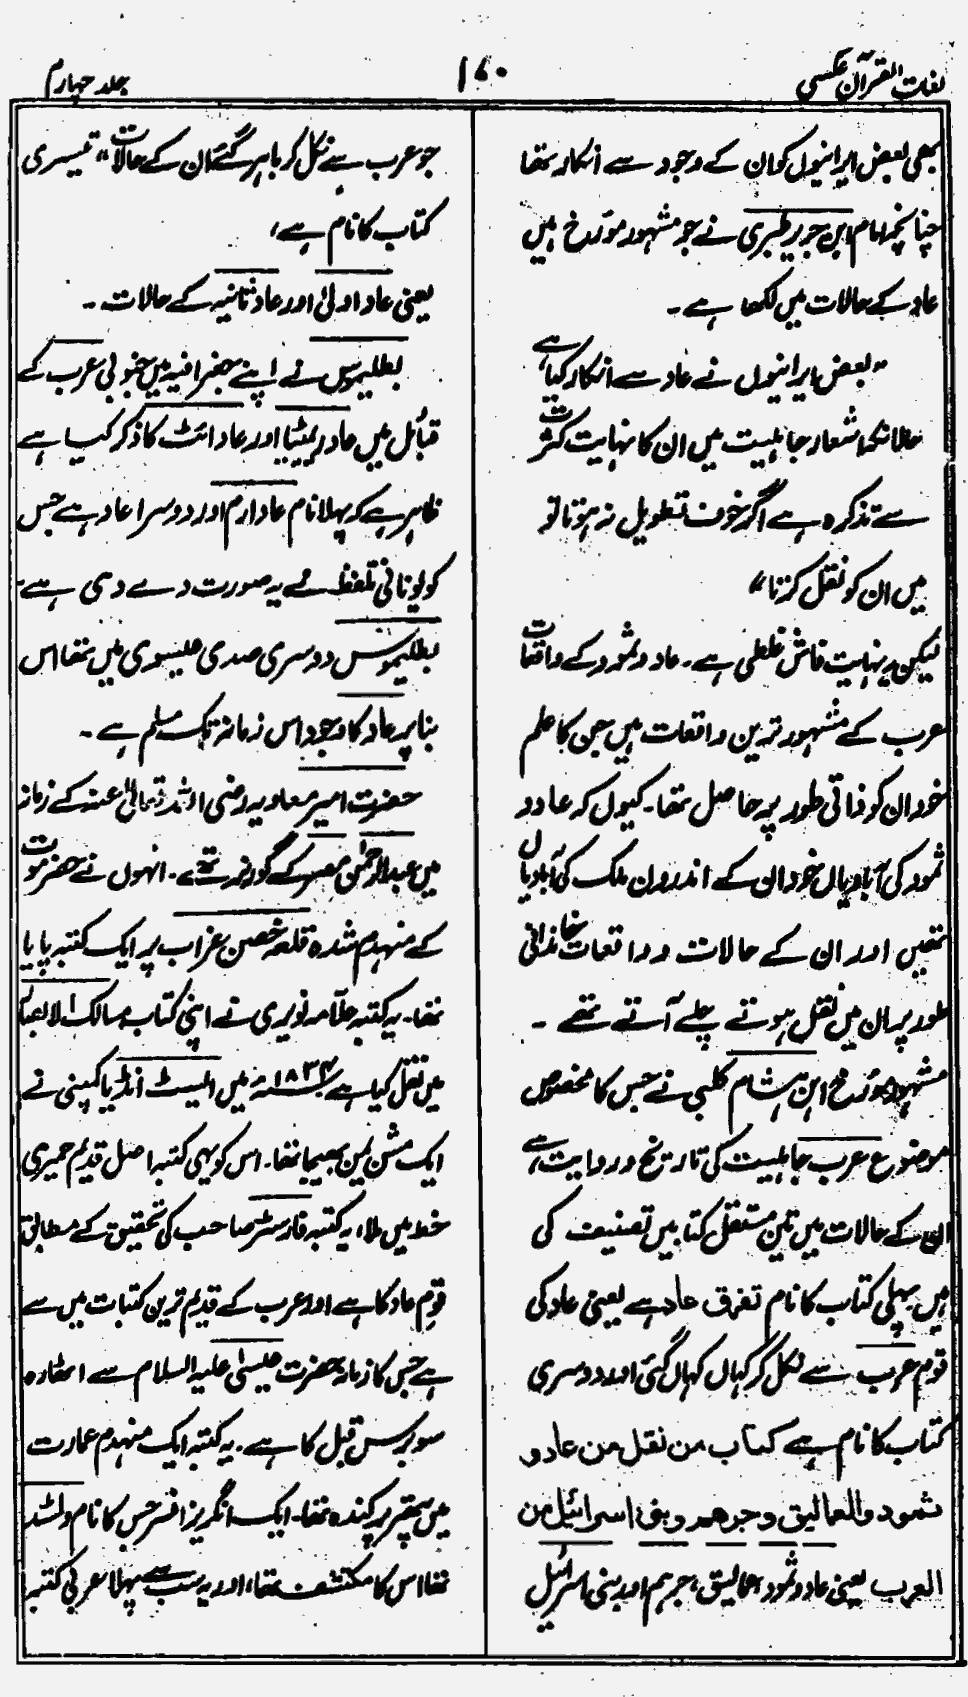 لغت القرآن عکسی
۱۷۰
جلد چہارم
بھی بعض ایرانیوں کو ان کے وجود سے انکار تھا
چنانچہ امام ابن جریر طبری نے جو مشہور مؤرخ ہیں
عاد کے حالات میں لکھا ہے۔
"بعض ایرانیوں نے عاد سے انکار کیا ہے
حالانکہ اشعار جاہلیت میں ان کا نہایت کثرت
سے تذکرہ ہے اگر خوف تطویل نہ ہوتا تو
میں ان کو نقل کرتا"
لیکن یہ نہایت فاش غلطی ہے۔ عاد و ثمود کے واقعات
عرب کے مشہور ترین واقعات ہیں جن کا علم
خود ان کو ذاتی طور پر حاصل تھا۔ کیوں کہ عاد و
ثمود کی آبادیاں خود ان کے اندرون ملک کی آبادیاں
تھیں اور ان کے حالات و واقعات خاندانی
طور پر ان میں نقل ہوتے چلے آتے تھے۔
مشہور مؤرخ ابن ہشام کلبی نے جس کا مخصوص
موضوع عرب جاہلیت کی تاریخ و روایت ہے،
ان کے حالات میں تین مستقل کتابیں تصنیف کی
ہیں پہلی کتاب کا نام تفرق عاد ہے یعنی عاد کی
قوم عرب سے نکل کر کہاں کہاں گئی اور دوسری
کتاب کا نام ہے کتاب من نقل من عاد و
ثمود والعمالیق وجرھم وبنی اسرائیل من
العرب یعنی عاد و ثمود، عمالیق، جرہم اور بنی اسرائیل
جو عرب سے نکل کر باہر گئے ان کے حالات" تیسری
کتاب کا نام ہے،
یعنی عاد اولیٰ اور عاد ثانیہ کے حالات۔
بطلیموس نے اپنے جغرافیہ میں جنوبی عرب کے
قبائل میں عاد ریمیٹیا اور عاد ائٹ کا ذکر کیا ہے
ظاہر ہے کہ پہلا نام عاد ارم اور دوسرا عاد ہے جس
کو یونانی تلفظ نے یہ صورت دے دی ہے۔
بطلیموس دوسری صدی عیسوی میں تھا اس
بنا پر عاد کا وجود اس زمانہ تک مسلم ہے۔
حضرت امیر معاویہ رضی اللہ تعالیٰ عنہ کے زمانہ
میں عبدالرحمٰن مصر کے گورنر تھے۔ انہوں نے حضرموت
کے منہدم شدہ قلعہ حصن غراب پر ایک کتبہ پایا
تھا۔ یہ کتبہ علامہ نویری نے اپنی کتاب مسالک الابصار
میں نقل کیا ہے ۱۸۳۴ء میں ایسٹ انڈیا کمپنی نے
ایک مشن یمن بھیجا تھا۔ اس کو یہی کتبہ اصل قدیم حمیری
خط میں ملا، یہ کتبہ فارسٹر صاحب کی تحقیق کے مطابق
قوم عاد کا ہے اور عرب کے قدیم ترین کتبات میں سے
ہے جس کا زمانہ حضرت عیسیٰ علیہ السلام سے اٹھارہ
سو برس قبل کا ہے۔ یہ کتبہ ایک منہدم عمارت
میں پتھر پر کندہ تھا۔ ایک انگریز افسر جس کا نام ولسٹڈ
تھا اس کا مکتشف تھا، اور یہ سب سے پہلا عربی کتبہ